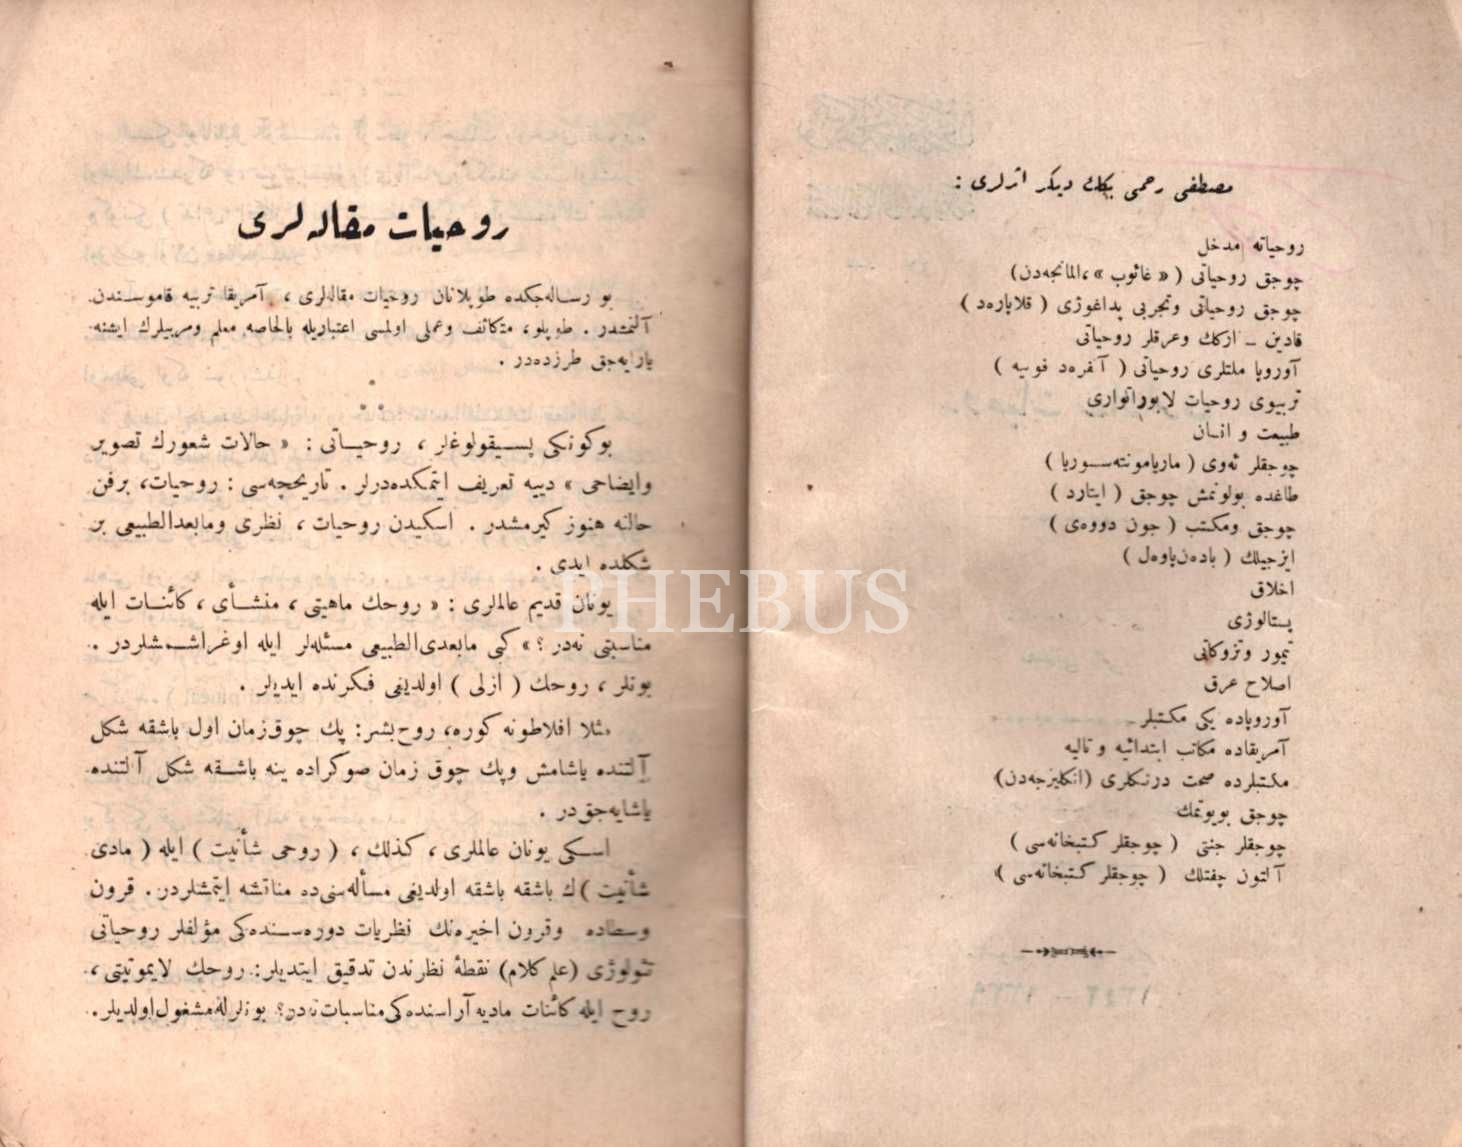 مصطفی رحمی بكك دیكر اثرلری :
روحیاته مدخل
چوجق روحیاتی ( « غاٹوب » ،المانجەدن)
چوجق روحیاتی وتجربی پداغوژی ( قلاپارەد )
قادین ــ اركك وعرقلر روحیاتی
آوروپا ملتلری روحیاتی ( آلفرەد فویيە )
تربیوی روحیات لابوراتواری
طبیعت و انسان
چوجقلر ئەوی ( ماریامونتەسوریا )
طاغدە بولونمش چوجق ( ایتارد )
چوجق ومكتب ( جون دووەی )
ایزجیلك ( بادەن پاوەل )
اخلاق
پستالوژی
تیمور وتزوكاتی
اصلاح عرق
آوروپادە یكی مكتبلر
آمریقادە مكاتب ابتدائیە و تالیە
مكتبلردە صحت درنكلری (انكلیزجەدن)
چوجق بویوتمك
چوجقلر جنتی ( چوجقلر كتبخانەسی )
آلتون چفتلك ( چوجقلر كتبخانەسی )
روحیات مقالەلری
بو رسالەجكدە طوپلانان روحیات مقالەلری ، آمریقا تربیە قاموسندن
آلنمشدر . طوپلو، متكاثف وعملی اولمسی اعتباریلە بالخاصە معلم ومربیلرك ایشنە
یارایەجق طرزدەدر .
بوكونكی پسیقولوغلر ، روحیاتی : « حالات شعورك تصویر
وایضاحی » دییە تعریف ایتمكدەدرلر . تاریخچەسی : روحیات، برفن
حالنە هنوز كیرمشدر . اسكیدن روحیات ، نظری ومابعدالطبیعی بر
شكلدە ایدی .
یونان قدیم عالملری : « روحك ماهیتی ، منشأی ، كائنات ایلە
مناسبتی نەدر ؟ » كبی مابعدی‌الطبیعی مسئلەلر ایلە اوغراشمشلردر .
بونلر ، روحك ( ازلی ) اولدیغی فكرندە ایدیلر .
مثلا افلاطونە كورە، روح بشر: پك چوق زمان اول باشقە شكل
آلتندە یاشامش وپك چوق زمان صوكرادە ینە باشقە شكل آلتندە
یاشایەجق در .
اسكی یونان عالملری ، كذلك ، ( روحی شأنیت ) ایلە ( مادی
شأنیت )ك باشقە باشقە اولدیغی مسألەسی‌دە مناقشە ایتمشلردر . قرون
وسطادە وقرون اخیرەنك نظریات دورەسندەكی مؤلفلر روحیاتی
تئولوژی (علم كلام) نقطۀ نظرندن تدقیق ایتدیلر: روحك لایموتیتی ،
روح ایلە كائنات مادیە آراسندەكی مناسبات نەدر؟ بونلرلە مشغول اولدیلر.
PHEBUS